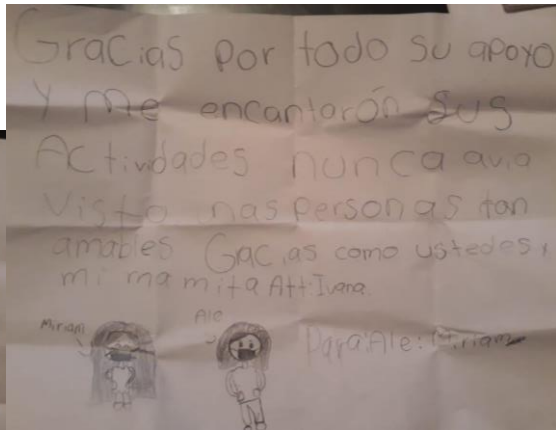 Gracias por todo su apoyo
Y me encantarón sus
Actividades nunca avia
Visto nas personas tan
amables Gacias como ustedes,
mi mamita Att:Ivana.
Miriam
Ale
Para:Ale:Miriam